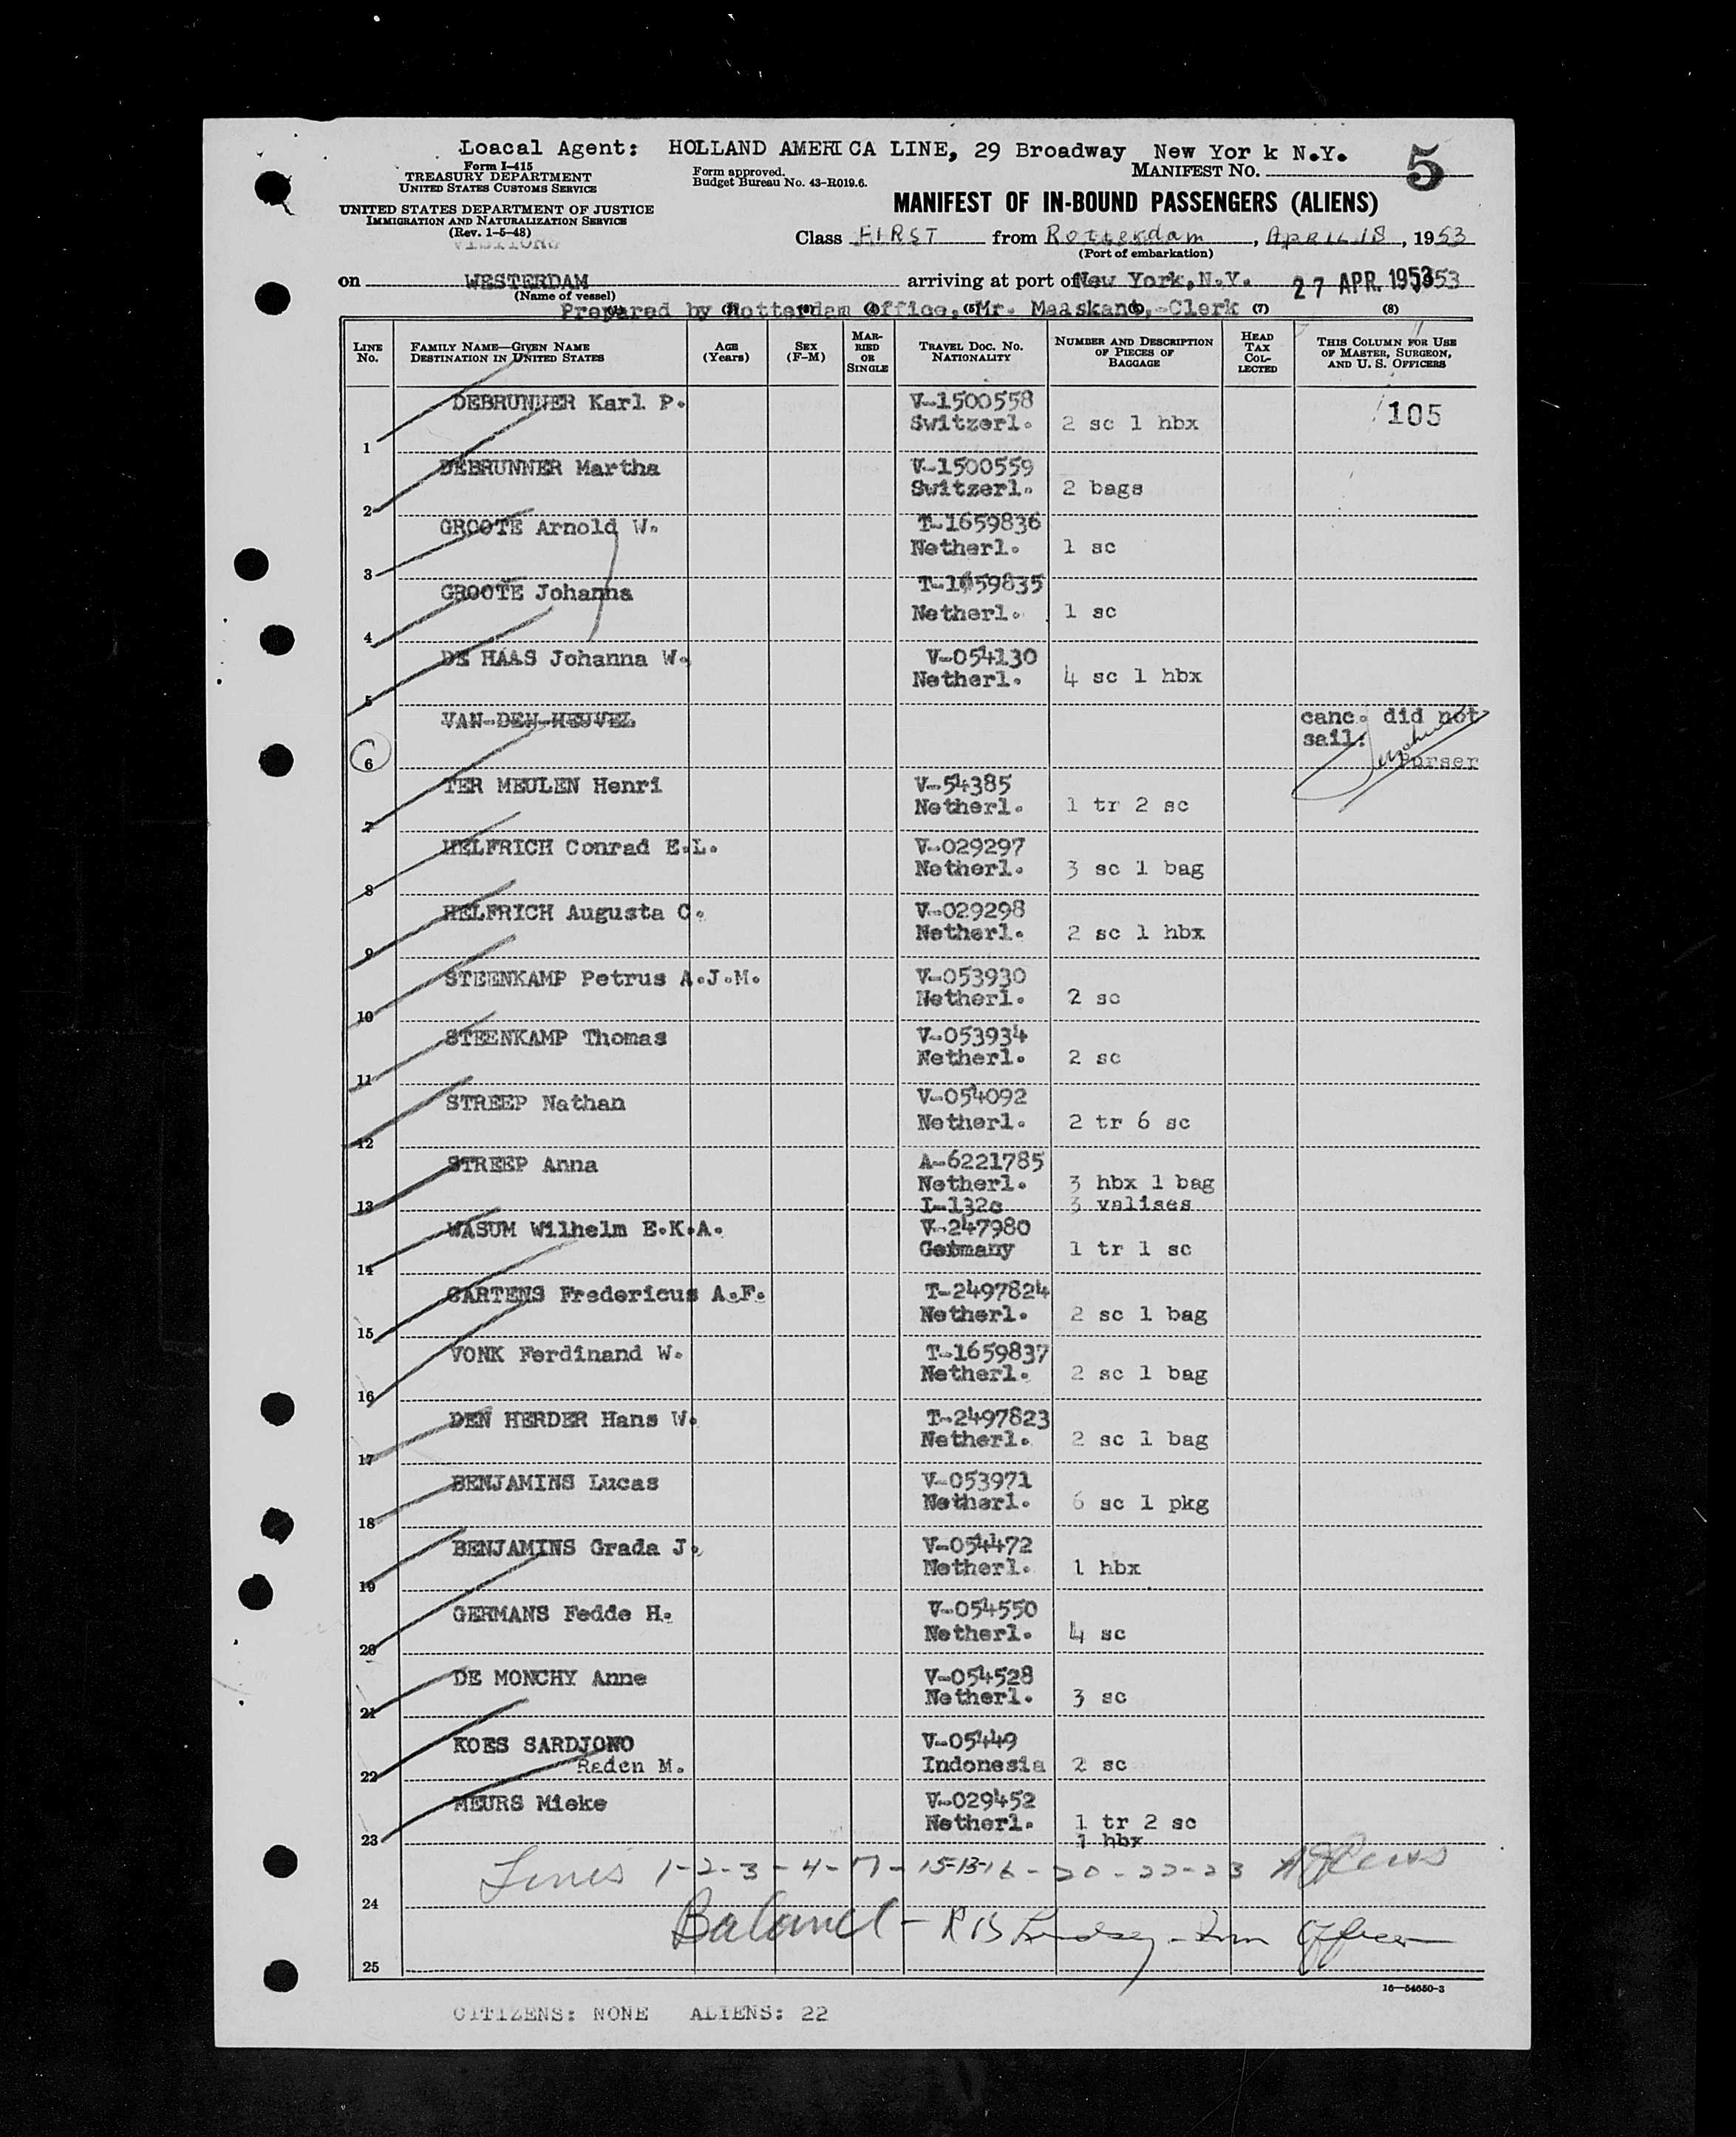 Loacal Agent: HOLLAND AMERICA LINE, 29 Broadway New Yor k N.Y.
5
Form I-415
TREASURY DEPARTMENT
UNITED STATES CUSTOMS SERVICE
Form approved.
Budget Bureau No. 43-R019.6.
MANIFEST NO.
UNITED STATES DEPARTMENT OF JUSTICE
IMMIGRATION AND NATURALIZATION SERVICE
(Rev. 1-5-48)
VISITORS
MANIFEST OF IN-BOUND PASSENGERS (ALIENS)
Class FIRST from Rotterdam, APRIL 18, 1953
(Port of embarkation)
on WESTERDAM arriving at port of New York, N.Y. 27 APR. 1953 53
(Name of vessel)
Prepared by Rotterdam Office, Mr. Maaskant, Clerk (7) (8)
LINE No.
FAMILY NAME—GIVEN NAME
DESTINATION IN UNITED STATES
AGE (Years)
SEX (F-M)
MARRIED OR SINGLE
TRAVEL DOC. NO.
NATIONALITY
NUMBER AND DESCRIPTION OF PIECES OF BAGGAGE
HEAD TAX COLLECTED
THIS COLUMN FOR USE OF MASTER, SURGEON, AND U. S. OFFICERS
1 DEBRUNNER Karl P. V-1500558 Switzerl. 2 sc 1 hbx 105
2 DEBRUNNER Martha V-1500559 Switzerl. 2 bags
3 GROOTE Arnold W. T-1659836 Netherl. 1 sc
4 GROOTE Johanna T-1659835 Netherl. 1 sc
5 DE HAAS Johanna W. V-054130 Netherl. 4 sc 1 hbx
6 VAN DEN HEUVEL canc. did not sail: Purser
7 TER MEULEN Henri V-54385 Netherl. 1 tr 2 sc
8 HELFRICH Conrad E.L. V-029297 Netherl. 3 sc 1 bag
9 HELFRICH Augusta C. V-029298 Netherl. 2 sc 1 hbx
10 STEENKAMP Petrus A.J.M. V-053930 Netherl. 2 sc
11 STEENKAMP Thomas V-053934 Netherl. 2 sc
12 STREEP Nathan V-054092 Netherl. 2 tr 6 sc
13 STREEP Anna A-6221785 Netherl. I-132c 3 hbx 1 bag 3 valises
14 WASUM Wilhelm E.K.A. V-247980 Germany 1 tr 1 sc
15 CARTENS Fredericus A.F. T-2497824 Netherl. 2 sc 1 bag
16 VONK Ferdinand W. T-1659837 Netherl. 2 sc 1 bag
17 DEN HERDER Hans W. T-2497823 Netherl. 2 sc 1 bag
18 BENJAMINS Lucas V-053971 Netherl. 6 sc 1 pkg
19 BENJAMINS Grada J. V-054472 Netherl. 1 hbx
20 GERMANS Fedde H. V-054550 Netherl. 4 sc
21 DE MONCHY Anne V-054528 Netherl. 3 sc
22 KOES SARDJONO Raden M. V-05449 Indonesia 2 sc
23 MEURS Mieke V-029452 Netherl. 1 tr 2 sc 1 hbx
Lines 1-2-3-4-17-15-13-16-20-22-23
24 Balance - R B Lindsey - Imm Officer
25
16—54650-3
CITIZENS: NONE ALIENS: 22